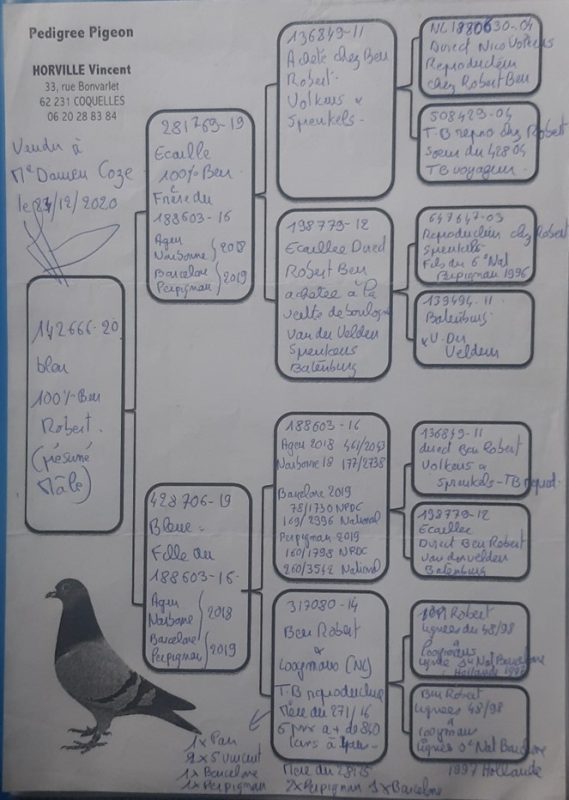 Pedigree Pigeon
HORVILLE Vincent
33, rue Bonvarlet
62 231 COQUELLES
06 20 28 83 84
Vendu à
Mr Damien Coze
le 27/12/2020
142666-20
bleu
100% Ben
Robert.
(présumé
Mâle)
281769-19
Ecaille
100% Ben.
Frère du
188603-16
Agen
Narbonne
2018
Barcelone
Perpignan
2019
428706-19
Bleue
Fille du
188603-16
Agen
Narbonne
2018
Barcelone
Perpignan
2019
136849-11
Acheté chez Ben
Robert.
Volkens x
Sprenkels.
198779-12
Ecaillée Direct
Robert Ben
achetée à la
vente de boulogne
Van der Velden
Sprenkens
Batenburg
188603-16
Agen 2018 461/2043
Narbonne 18 177/2738
Barcelone 2019
78/1730 NPDC
169/2396 National
Perpignan 2019
160/1798 NPDC
260/3542 National
317080-14
Ben Robert
x
Looymans (NL)
T.B reproductrice
Mère du 271/16
5 prix à + de 840
kms à 4 ans
1x Pau
2x St Vincent
1x Barcelone
1x Perpignan
Mère du 28.15
2x Perpignan 1x Barcelone
NL1880630-04
Direct Nico Volkens
Reproducteur
chez Robert Ben
508429-04
T-B repro chez Robert
Soeur du 428 04
TB voyageur
647647-03
Reproducteur chez Robert
Sprenkels
Fils du 6° Nat
Perpignan 1996
139494-11
Batenburg
x V. Der
Velden
136849-11
direct Ben Robert
Volkens x
Sprenkels-TB reprod.
198779-12
Ecaillée
Direct Ben Robert
van der velden
Batenburg
Robert
lignées du 48/98
x
Looymans
ligne Nat Barcelone
Hollande
Ben Robert
Lignées 48/98
x
Looymans
lignes Nat Barcelone
1997 Hollande